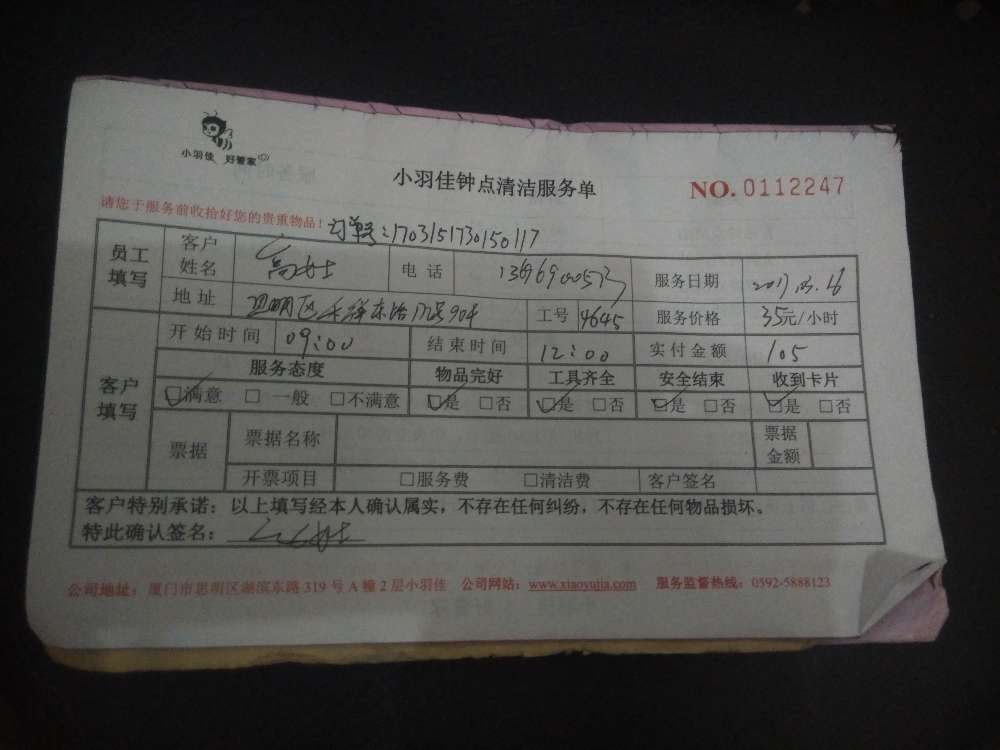 小羽佳 好管家
小羽佳钟点清洁服务单
NO. 0112247
请您于服务前收拾好您的贵重物品! 订单号:1703151730150117
员工填写 客户姓名 高女士 电话 服务日期 2017.03.16
地址 思明区 东路 号904 工号 4645 服务价格 35元/小时
客户填写 开始时间 09:00 结束时间 12:00 实付金额 105
服务态度 物品完好 工具齐全 安全结束 收到卡片
☑满意 □ 一般 □不满意 ☑是 □否 ☑是 □否 ☑是 □否 ☑是 □否
票据 票据名称 票据金额
开票项目 □服务费 □清洁费 客户签名
客户特别承诺:以上填写经本人确认属实,不存在任何纠纷,不存在任何物品损坏。
特此确认签名:
公司地址:厦门市思明区湖滨东路 319 号 A 幢 2 层小羽佳 公司网站:www.xiaoyujia.com 服务监督热线:0592-5888123